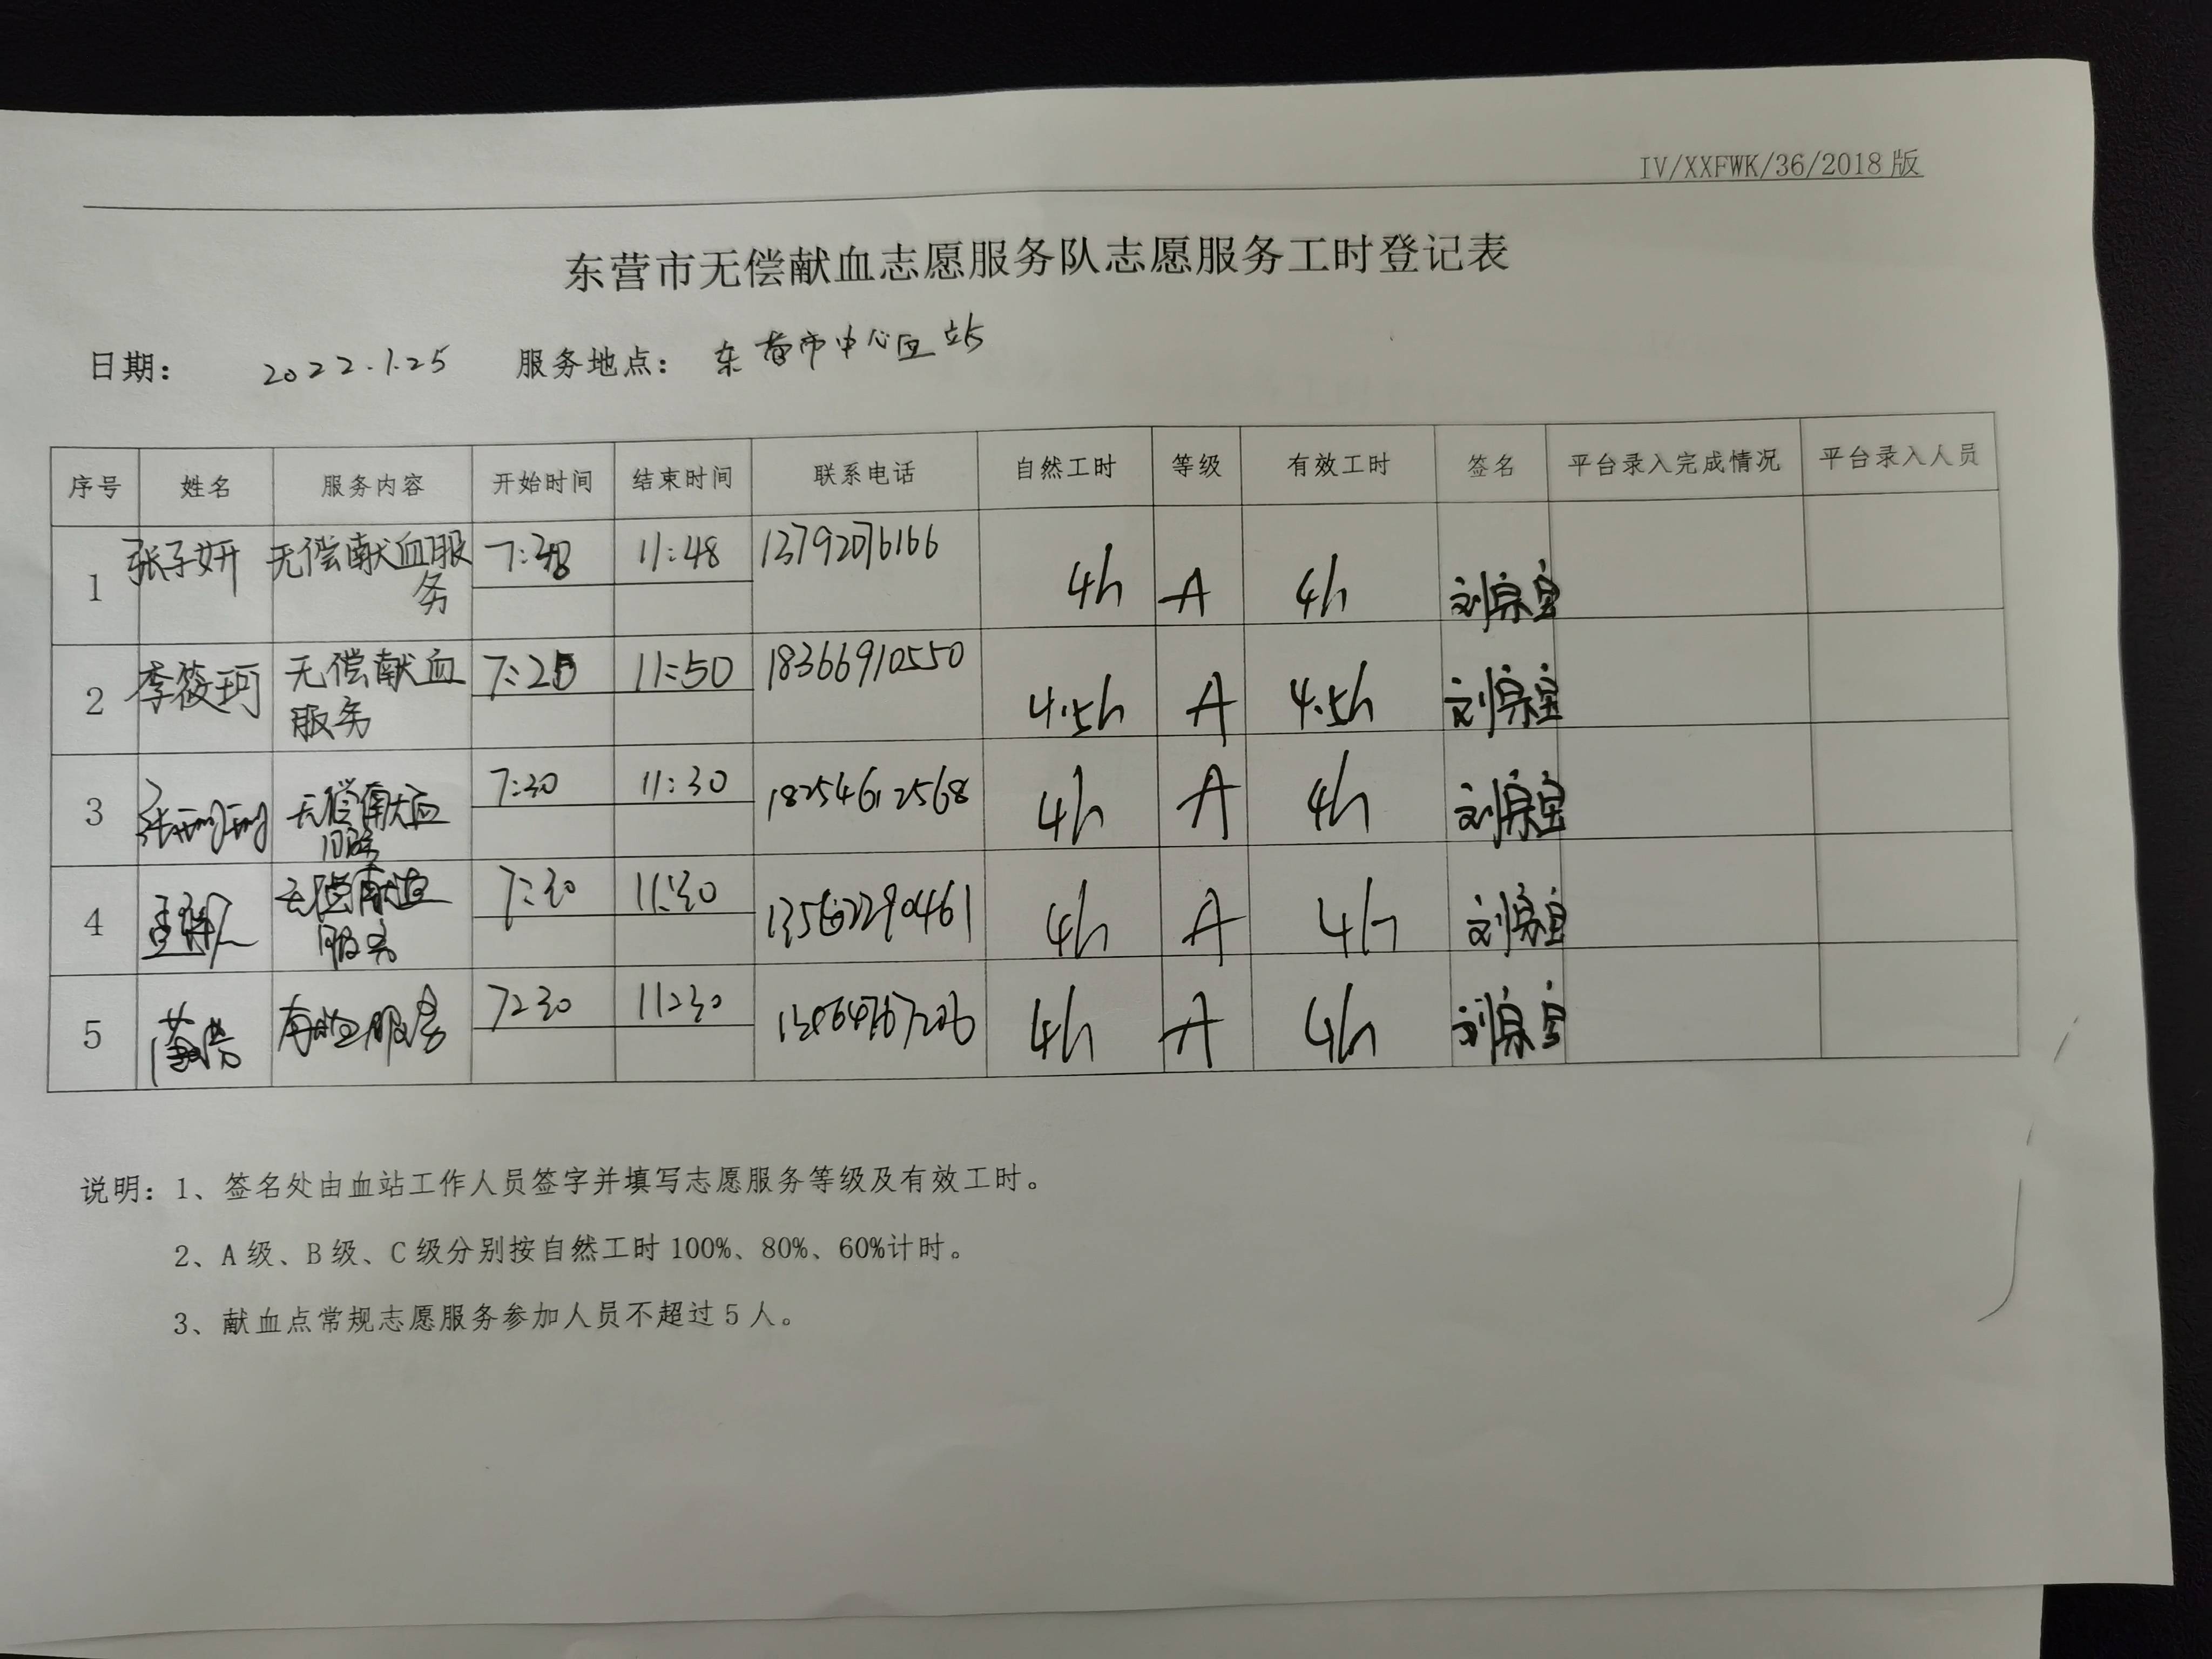 IV/XXFWK/36/2018版
东营市无偿献血志愿服务队志愿服务工时登记表
日期： 2022.1.25 服务地点： 东营市中心血站
序号 姓名 服务内容 开始时间 结束时间 联系电话 自然工时 等级 有效工时 签名 平台录入完成情况 平台录入人员
1 张子妍 无偿献血服务 11:48 13792076166 4h A 4h
2 李筱珂 无偿献血服务 11:50 18366910550 4.5h A 4.5h
3 张珊珊 无偿献血服务 7:30 11:30 18254612568 4h A 4h
4 无偿献血服务 7:30 11:30 4h A 4h
5 7:30 11:30 4h A 4h
说明：1、签名处由血站工作人员签字并填写志愿服务等级及有效工时。
2、A级、B级、C级分别按自然工时100%、80%、60%计时。
3、献血点常规志愿服务参加人员不超过5人。